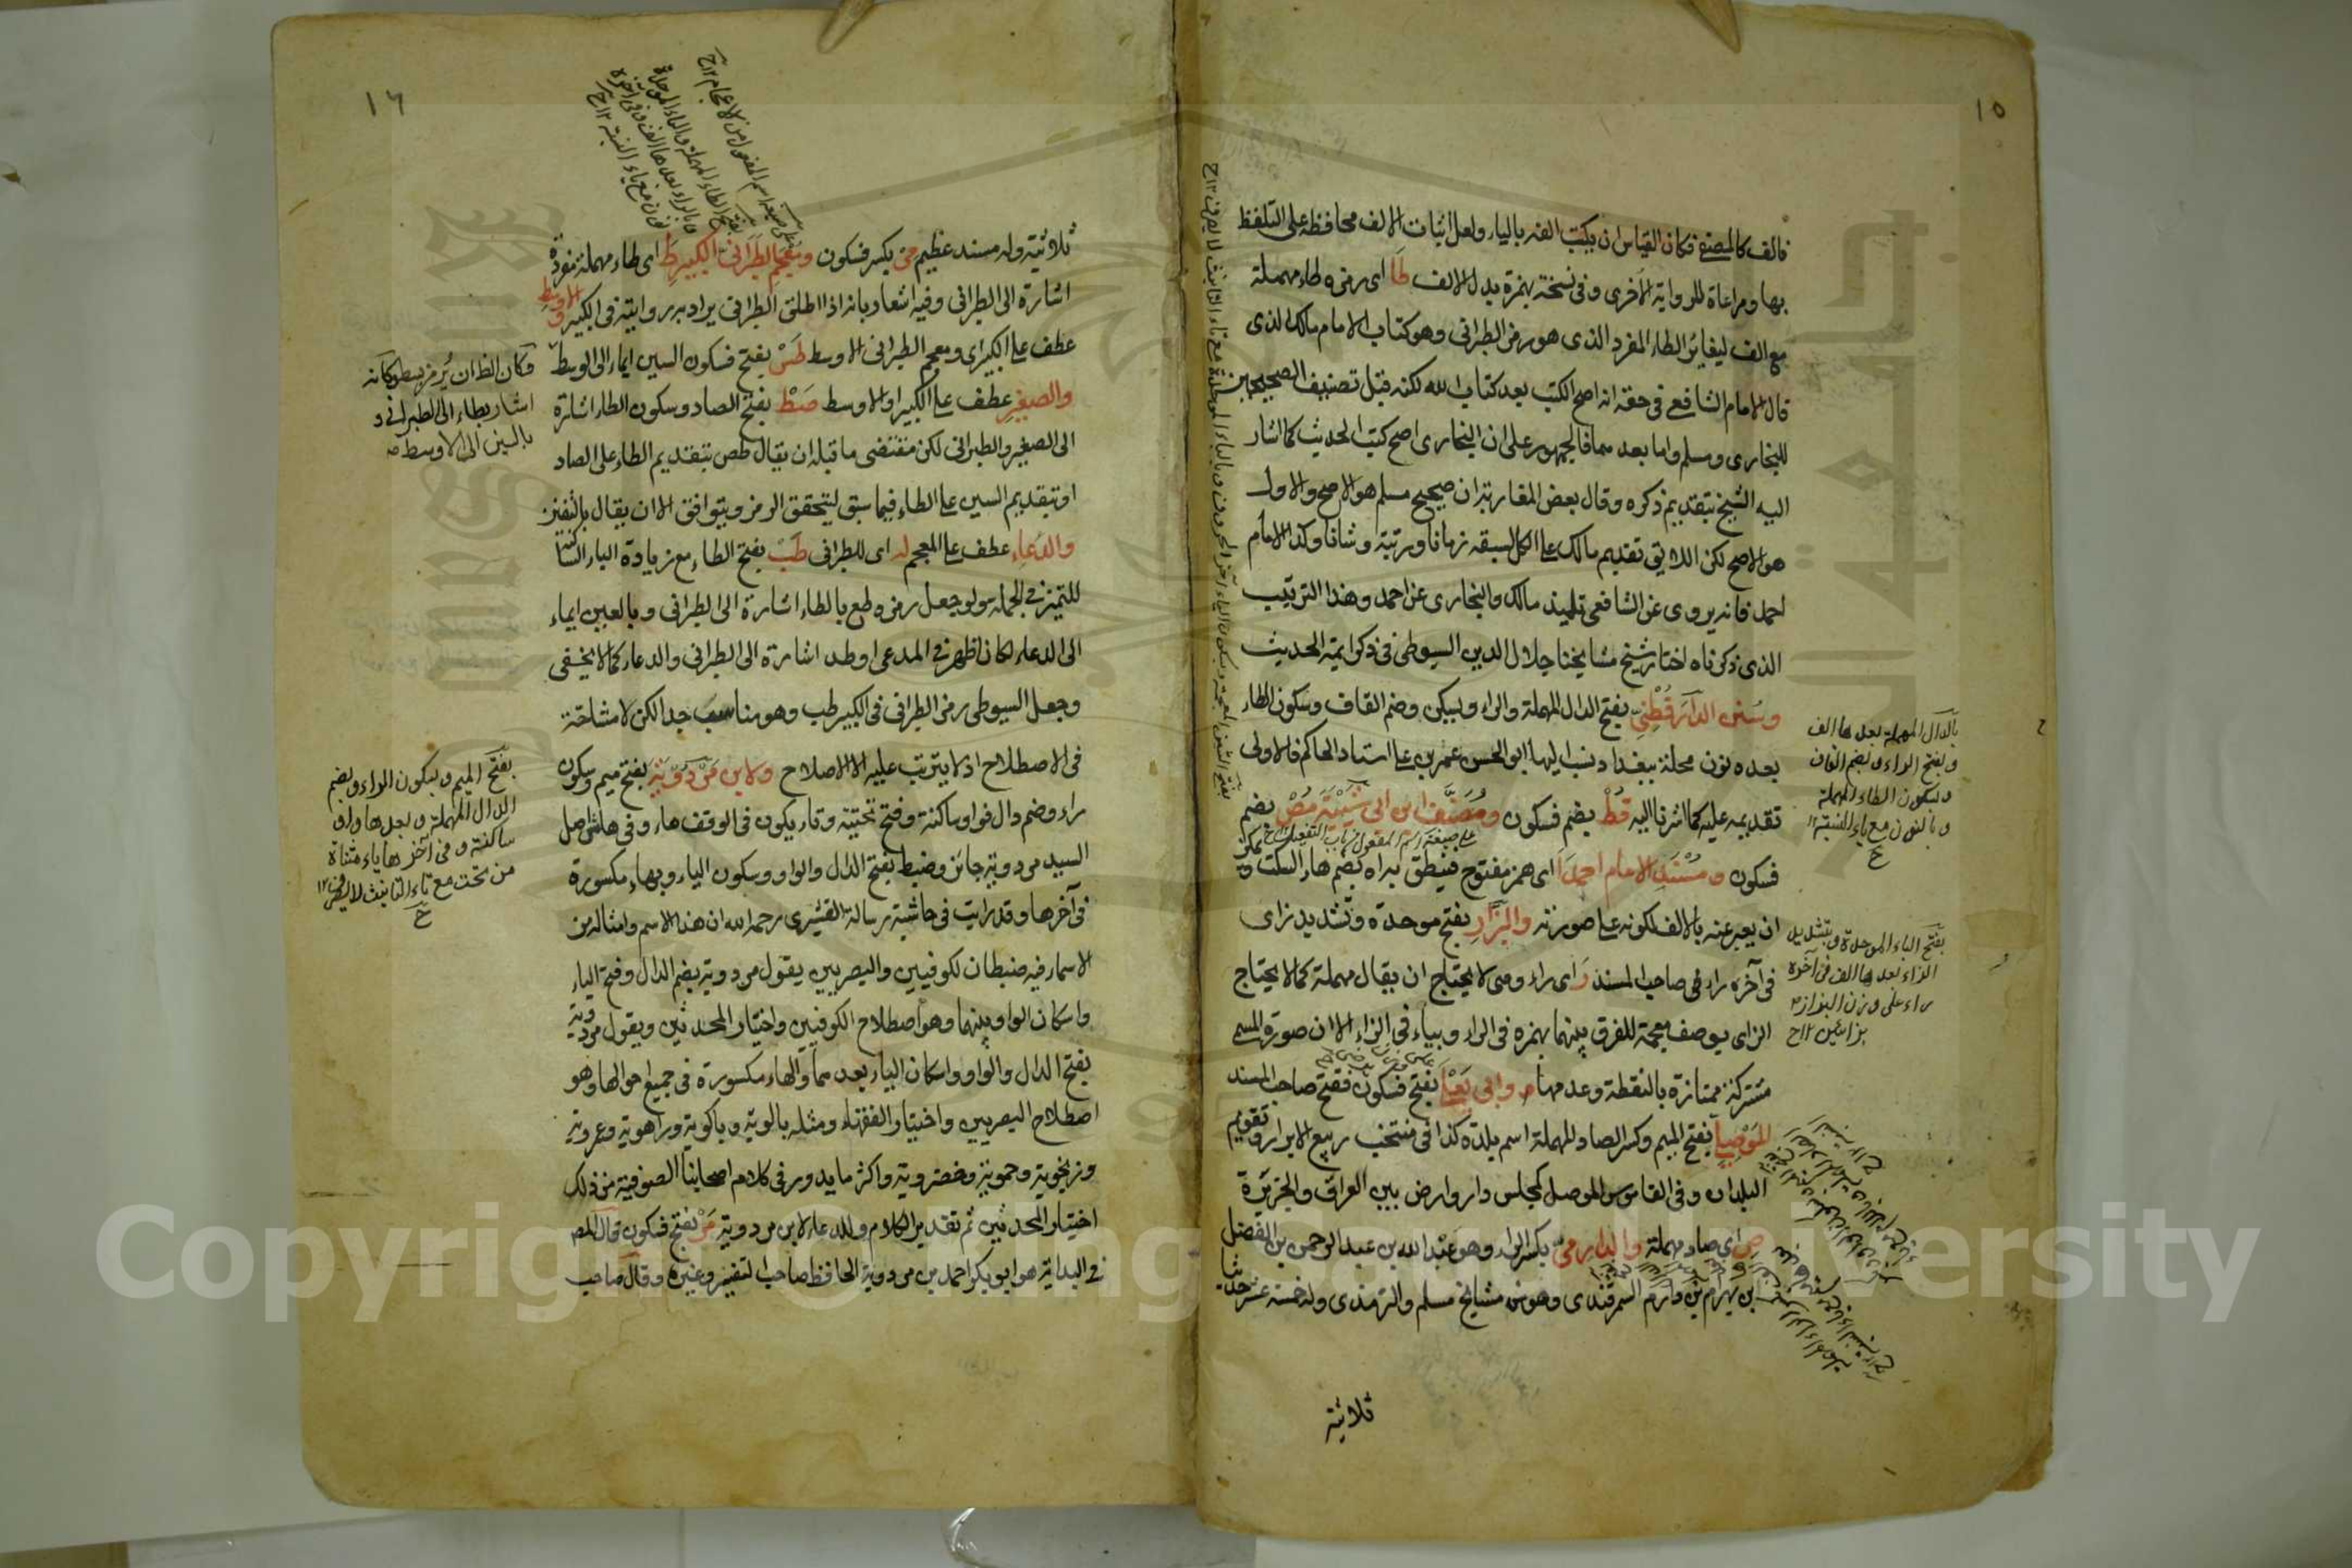 ١٥
فالف كالمصنف فكان القياس ان يكتب الفه بالياء ولعل اثبات الالف محافظة على التلفظ
بها ومراعاة للرواية الاخرى وفى نسخة بهمزة بدل الالف طا اى رمزه طاء مهملة
مع الف ليغاير الطاء المفرد الذى هو رمز الطبرانى وهو كتاب الامام مالك الذى
قال الامام الشافعى فى حقه انه اصح الكتب بعد كتاب الله لكنه قبل تصنيف الصحيحين
للبخارى ومسلم واما بعدهما فالجمهور على ان البخارى اصح كتب الحديث كما اشار
اليه الشيخ بتقديم ذكره وقال بعض المغاربة ان صحيح مسلم هو الاصح والاول
هو الاصح لكن اللائق تقديم مالك على الكل لسبقه زمانا ورتبة وشانا وكذا الامام
احمد فانه يروى عن الشافعى تلميذ مالك والبخارى عن احمد وهذا الترتيب
الذى ذكرناه اختار شيخ مشايخنا جلال الدين السيوطى فى ذكر ائمة الحديث
وسنن الدارقطنى بفتح الدال المهملة والراء ويسكن وضم القاف وسكون الطاء
بعده نون محلة ببغداد ينسب اليها ابو الحسن عمر بن على استاد الحاكم فالاولى
تقديمه عليه كما اشرنا اليه قط بضم فسكون ومصنف ابن ابى شيبة مص بضم
على صيغة اسم المفعول من باب التفعيل
فسكون ومسند الامام احمد ا اى همز مفتوح فينطق به اه بضم هاء السكت ويمكن
ان يعبر عنه بالالف لكونه على صورته والبزار بفتح موحدة وتشديد زاى
فى آخره راء فى صاحب المسند ر اى راء ومى لا يحتاج ان يقال مهملة كما لا يحتاج
الزاى يوصف معجمة للفرق بينهما بهمزه فى الراء وبياء فى الزاء الا ان صورة المسمى
مشتركة ممتازة بالنقطة وعدمها وابى يعلى بفتح فسكون ففتح صاحب المسند
الموصلى بفتح الميم وكسر الصاد المهملة اسم بلدة كذا فى منتخب ربيع الابرار وتقويم
البلدان وفى القاموس الموصل كمجلس دار وارض بين العراق والجزيرة
ص اى صاد مهملة والدارمى بكسر الراء وهو عبد الله بن عبد الرحمن بن الفضل
بن بهرام بن دارم السمرقندى وهو من مشايخ مسلم والترمذى وله خمسة عشر حديثا
ثلاثية
بالدال المهملة بعدها الف
وبفتح الراء وبضم القاف
وسكون الطاء المهملة
وبالنون مع ياء النسبة
بفتح الباء الموحدة وبتشديد
الزاء بعدها الف فى آخره
راء على وزن البزاز
بزائين ١٢ح
١٦
ثلاثية وله مسند عظيم مى بكسر فسكون ومعجم الطبرانى الكبير ط اى طاء مهملة مفردة
اشارة الى الطبرانى وفيه اشعار بانه اذا اطلق الطبرانى يراد به روايته فى الكبير والاوسط
عطف على الكبير اى ومعجم الطبرانى الاوسط طس بفتح فسكون السين ايماء الى الوسط
والصغير عطف على الكبير او الاوسط صط بفتح الصاد وسكون الطاء اشارة
الى الصغير والطبرانى لكن مقتضى ما قبله ان يقال طص بتقديم الطاء على الصاد
او بتقديم السين على الطاء فيما سبق ليتحقق الرمز ويتوافق الا ان يقال بالتفنن
والدعاء عطف على المعجم له اى للطبرانى طب بفتح الطاء مع زيادة الباء الساكنة
للتميز فى الجملة ولو جعل رمزه طع بالطاء اشارة الى الطبرانى وبالعين ايماء
الى الدعاء لكان اظهر فى المدعى او طد اشارة الى الطبرانى والدعاء كما لا يخفى
وجعل السيوطى رمز الطبرانى فى الكبير طب وهو مناسب جدا لكن لا مشاحة
فى الاصطلاح اذ لا يترتب عليه الا الاصلاح ولابن مردويه بفتح ميم وسكون
راء وضم دال فواو ساكنة وفتح تحتية وتاء يكون فى الوقف هاء وفى هامش اصل
السيد مردويه جائز وضبط بفتح الدال والواو وسكون الياء وبهاء مكسورة
فى آخرها وقد رايت فى حاشية رسالة القشيرى رحمه الله ان هذا الاسم وامثاله من
الاسماء فيه ضبطان لكوفيين والبصريين يقول مردويه بضم الدال وفتح الياء
واسكان الواو بينهما وهو اصطلاح الكوفيين واختيار المحدثين ويقول مردويه
بفتح الدال والواو واسكان الياء بعدهما والهاء مكسورة فى جميع احوالها وهو
اصطلاح البصريين واختيار الفقهاء ومثله بالويه وباكويه وراهويه وعمرويه
وزنجويه وحمويه وخضرويه واكثر ما يدور فى كلام اصحابنا الصوفية من ذلك
اختيار المحدثين ثم تقدير الكلام والدعاء لابن مردويه مر بفتح فسكون قال المص
فى البداية هو ابو بكر احمد بن مردويه الحافظ صاحب التفسير وغيره وقال صاحب
فكان الظ ان يرمز بسط وكانه
اشار بطاء الى الطبرانى و
بالسين الى الاوسط
بفتح الميم وبسكون الراء وبضم
الدال المهملة وبعدها واو
ساكنة وفى آخرها ياء مثناة
من تحت مع تاء التانيث لا يصرف ١٢
ح
Copyright © King Saud University